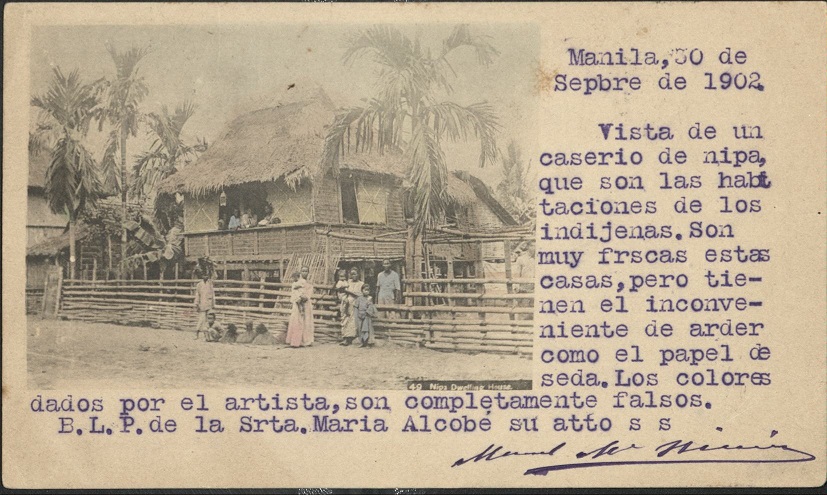 Manila,30 de
Sepbre de 1902.
Vista de un
caserio de nipa,
que son las habi
taciones de los
indijenas.Son
muy frscas estas
casas,pero tie-
nen el inconve-
niente de arder
como el papel de
seda.Los colores
49 Nipa Dwelling House.
dados por el artista,son complętamente falsos.
B.L.P.de la Srta.Maria Alcobé su atto s s